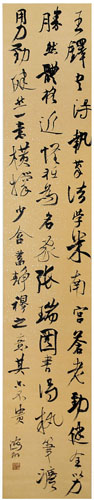 王鐸書得執筆法學米南宮蒼老勁健全以力
勝然體格近怪只為名家張瑞圖書得執筆法
用力勁健然一意橫撐少含蓄靜穆之意其品不貴